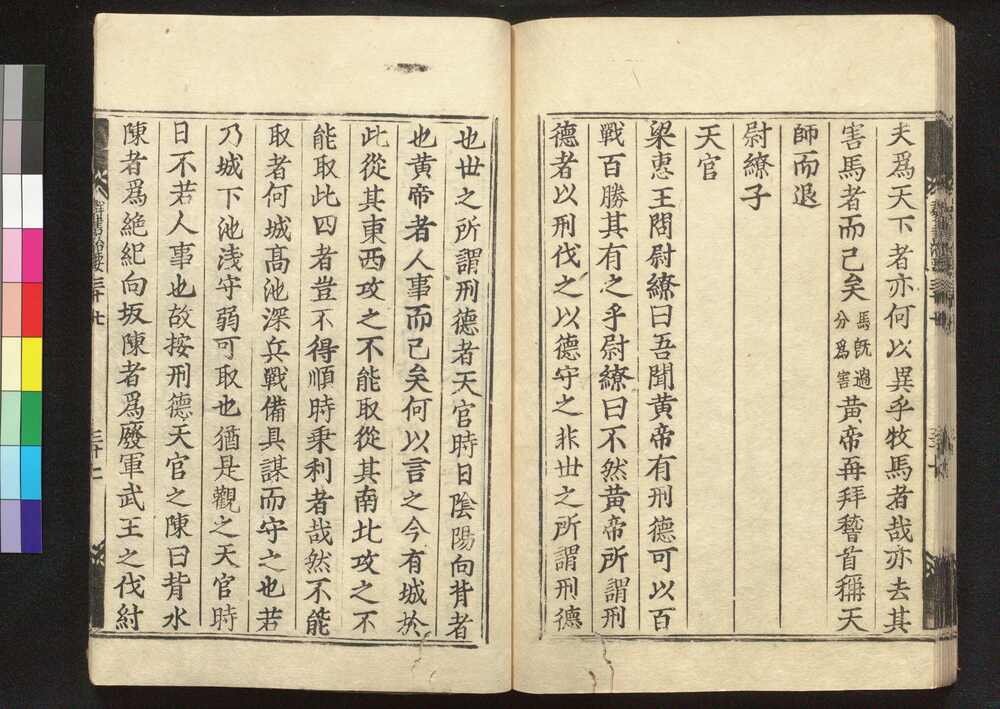 夫爲天下者亦何以異乎牧馬者哉亦去其
害馬者而已矣馬旣過分爲害黃帝再拜稽首稱天
師而退
尉繚子
天官
梁惠王問尉繚曰吾聞黃帝有刑德可以百
戰百勝其有之乎尉繚曰不然黃帝所謂刑
德者以刑伐之以德守之非世之所謂刑德
也世之所謂刑德者天官時日陰陽向背者
也黃帝者人事而已矣何以言之今有城於
此從其東西攻之不能取從其南北攻之不
能取此四者豈不得順時乘利者哉然不能
取者何城高池深兵戰備具謀而守之也若
乃城下池淺守弱可取也猶是觀之天官時
日不若人事也故按刑德天官之陳曰背水
陳者爲絶紀向坂陳者爲廢軍武王之伐紂
群書治要三十七
三十二